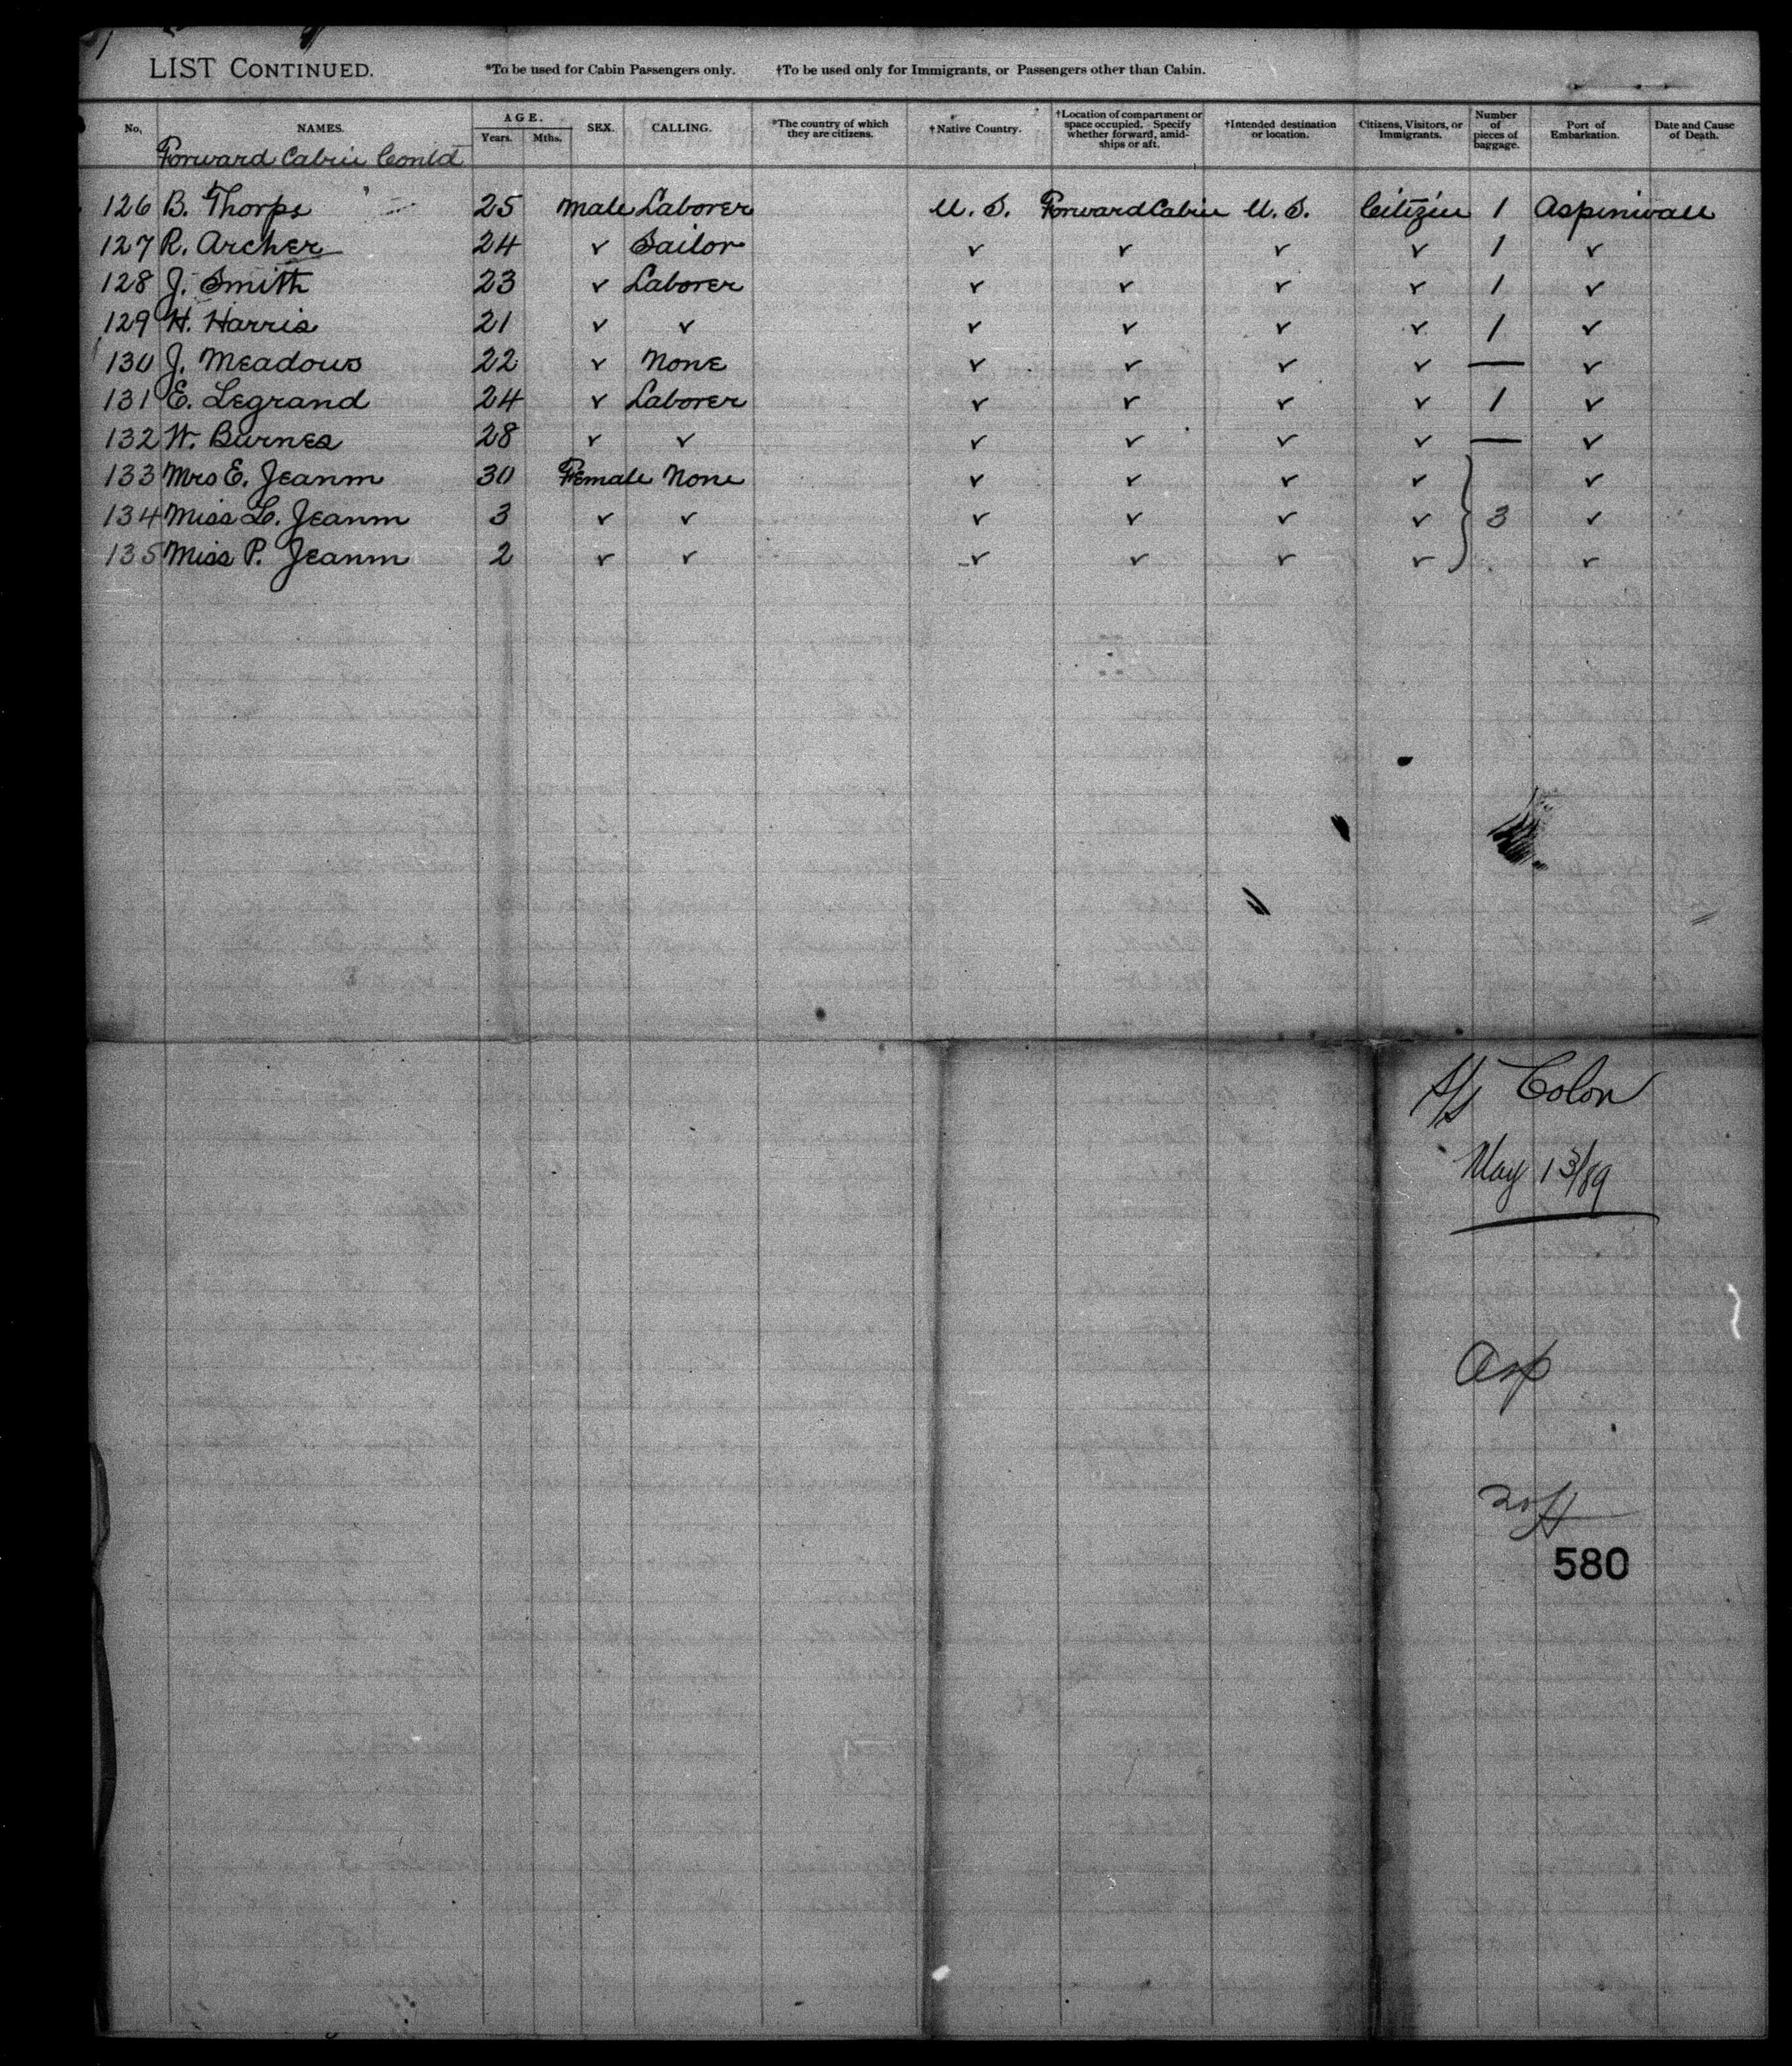 LIST CONTINUED. *To be used for Cabin Passengers only. †To be used only for Immigrants, or Passengers other than Cabin.
No. NAMES. AGE. Years. Mths. SEX. CALLING. *The country of which they are citizens. †Native Country. †Location of compartment or space occupied. Specify whether forward, amidships or aft. †Intended destination or location. Citizens, Visitors, or Immigrants. Number of pieces of baggage. Port of Embarkation. Date and Cause of Death.
Forward Cabin Contd
126 B. Thorps 25 Male Laborer U. S. Forward Cabin U. S. Citizen 1 Aspinwall
127 R. Archer 24 ✓ Sailor ✓ ✓ ✓ ✓ 1 ✓
128 J. Smith 23 ✓ Laborer ✓ ✓ ✓ ✓ 1 ✓
129 H. Harris 21 ✓ ✓ ✓ ✓ ✓ ✓ 1 ✓
130 J. Meadows 22 ✓ None ✓ ✓ ✓ ✓ — ✓
131 E. Legrand 24 ✓ Laborer ✓ ✓ ✓ ✓ 1 ✓
132 W. Burnes 28 ✓ ✓ ✓ ✓ ✓ ✓ — ✓
133 Mrs E. Jeanm 30 Female None ✓ ✓ ✓ ✓ ✓
134 Miss L. Jeanm 3 ✓ ✓ ✓ ✓ ✓ ✓ } 3 ✓
135 Miss P. Jeanm 2 ✓ ✓ ✓ ✓ ✓ ✓ ✓
S/S Colon
May 13/89
Asp
580